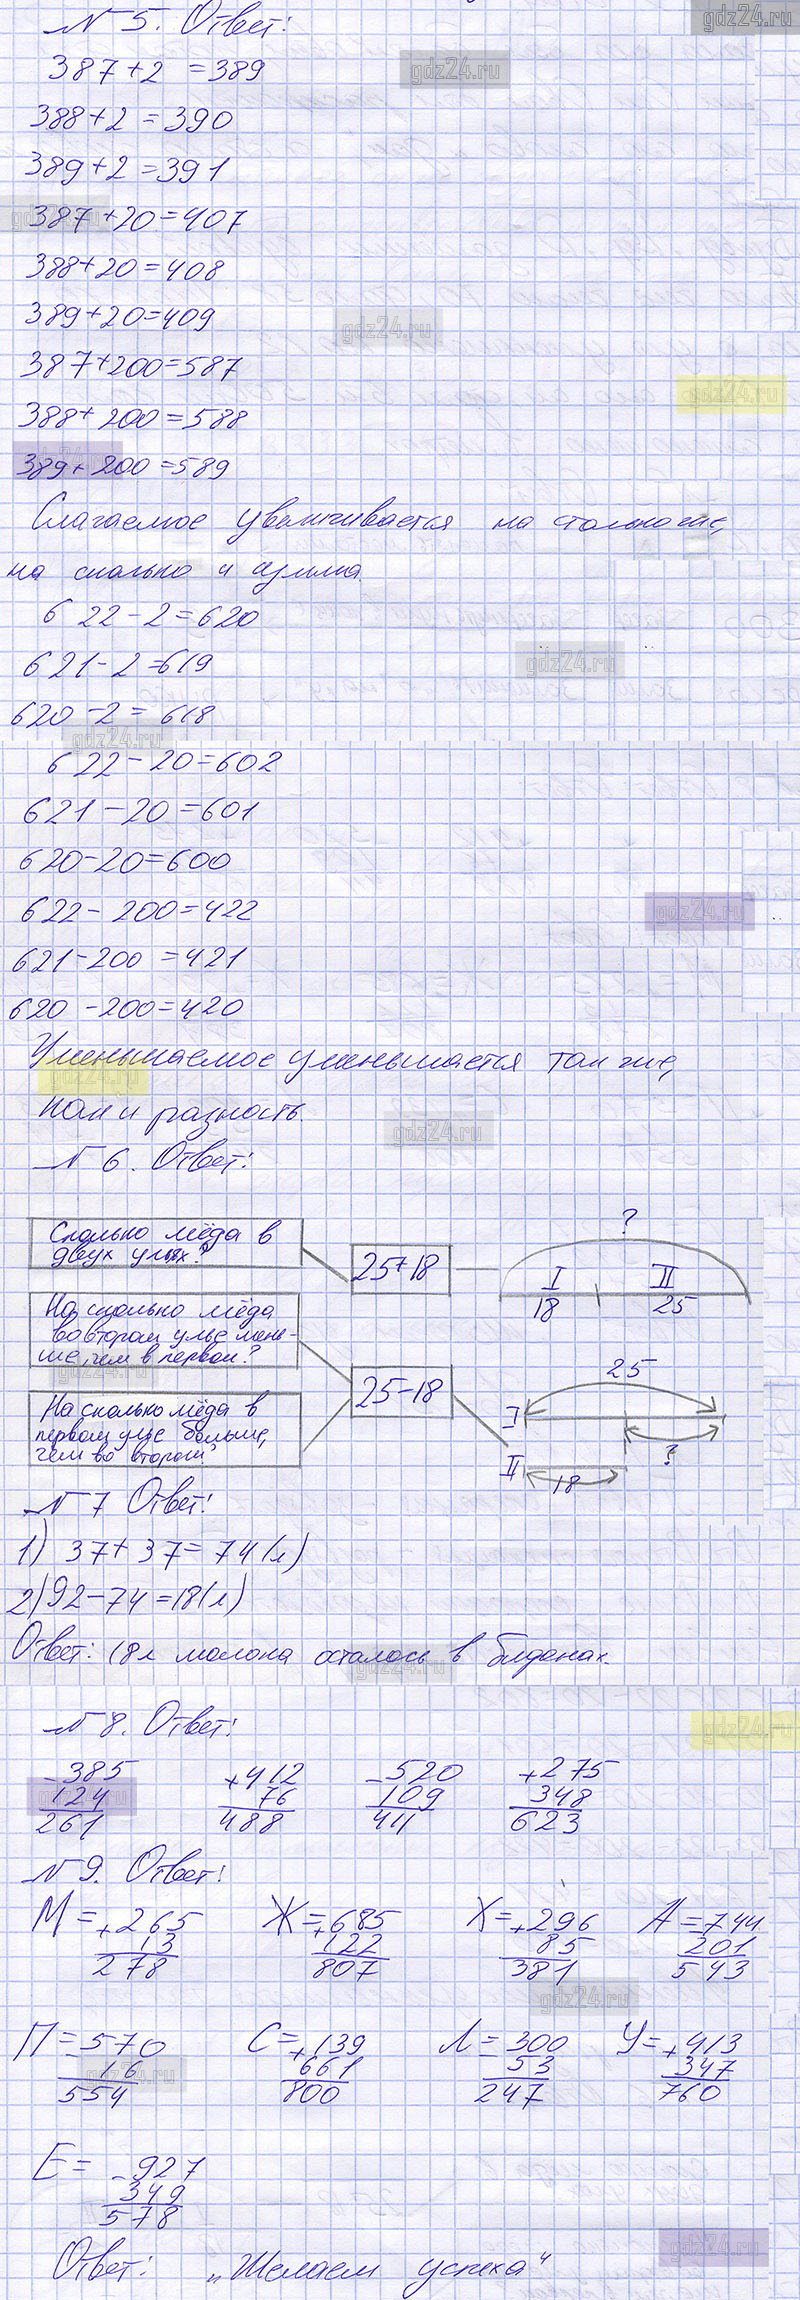 № 5. Ответ:
gdz24.ru
387+2 =389
gdz24.ru
388+2 =390
389+2 =391
gdz24.ru
387+20=407
388+20=408
389+20=409
gdz24.ru
387+200=587
gdz24.ru
388+200=588
389+200=589
Слагаемое увеличивается на столько же,
на сколько и сумма.
622-2=620
621-2=619
gdz24.ru
620-2=618
gdz24.ru
622-20=602
621-20=601
620-20=600
622-200=422
gdz24.ru
621-200 =421
620-200=420
Уменьшаемое уменьшается так же,
gdz24.ru
как и разность.
gdz24.ru
№ 6. Ответ:
?
Сколько мёда в
двух ульях?
25+18
I II
18 25
На сколько мёда
во втором улье мень-
ше, чем в первом?
25-18
25
На сколько мёда в
первом улье больше,
чем во втором?
I
?
II
18
№ 7 Ответ:
1) 37+37=74(л)
2) 92-74=18(л)
Ответ: 18л молока осталось в бидонах.
gdz24.ru
№ 8. Ответ:
gdz24.ru
-385 +412 -520 +275
124 76 109 348
261 488 411 623
№ 9. Ответ:
М=+265 Ж=+685 Х=+296 А=-744
13 122 85 201
278 807 381 543
gdz24.ru
П=-570 С=+139 Л=-300 У=+413
16 661 53 347
554 800 247 760
gdz24.ru
Е=-927
349
578
gdz24.ru
Ответ: „Желаем успеха"